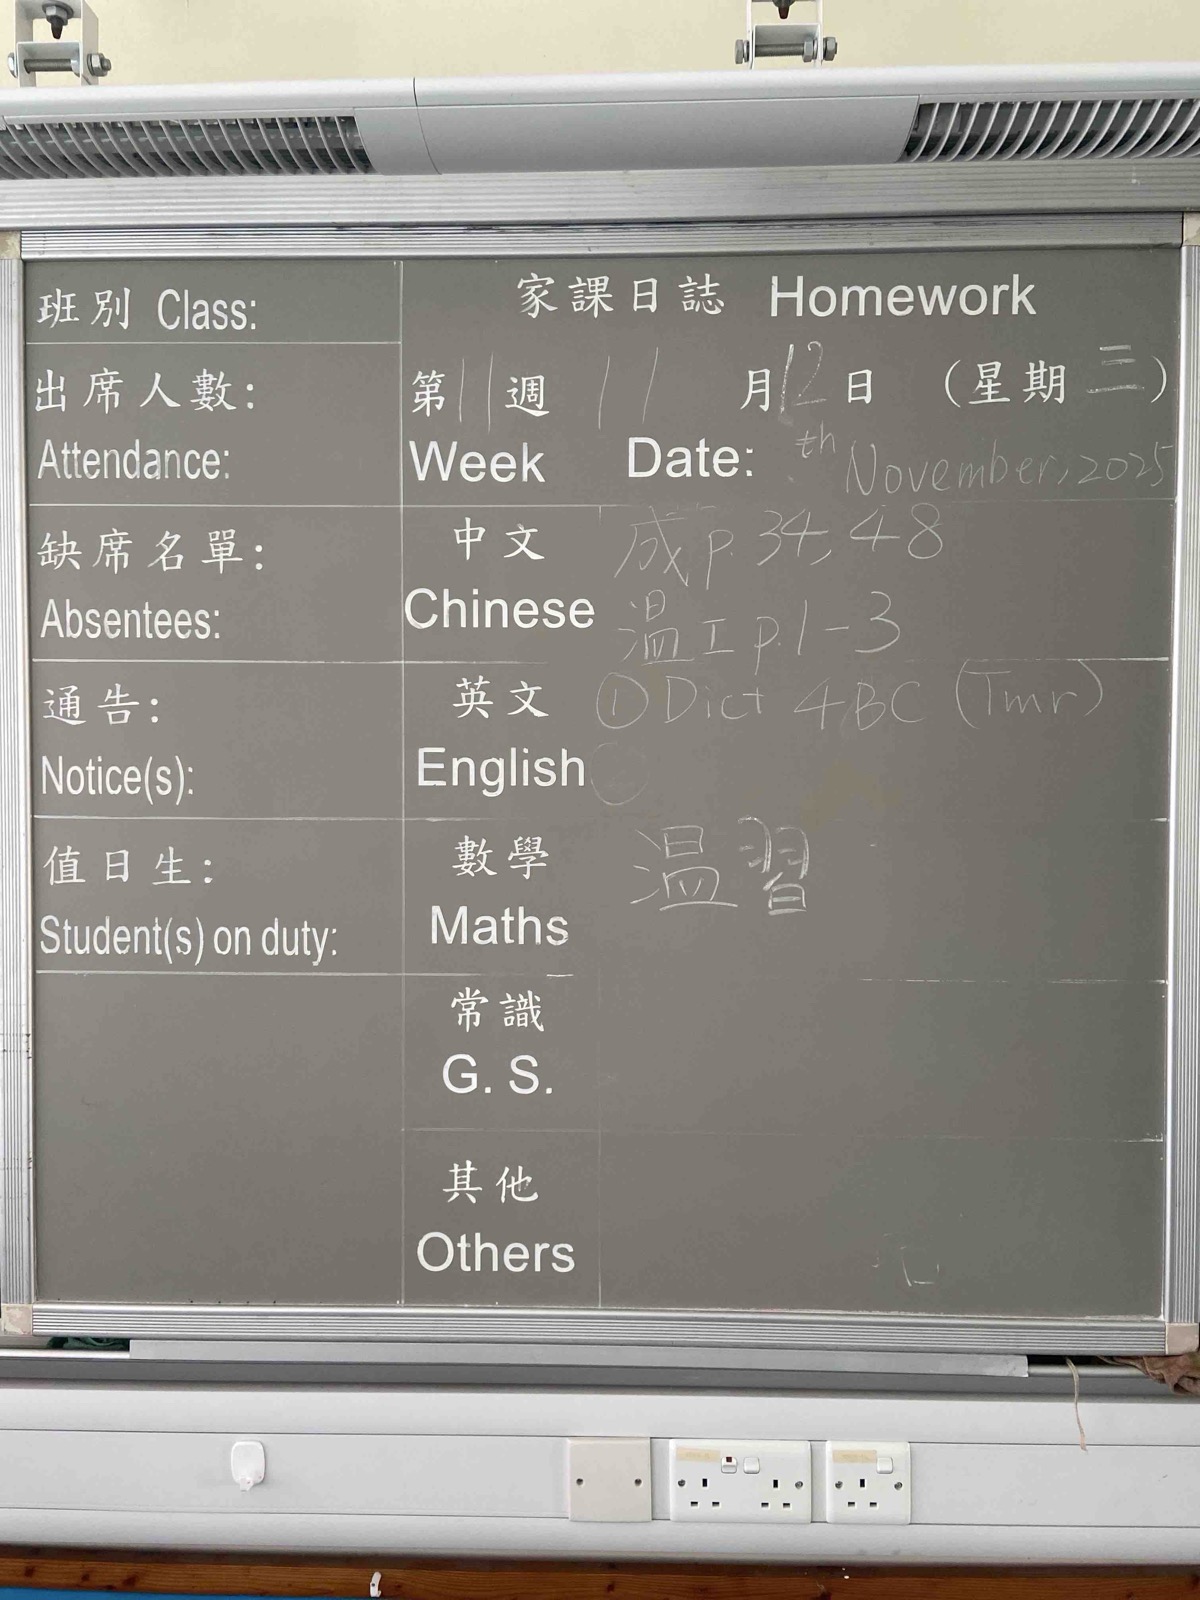 班別 Class:
家課日誌 Homework
出席人數:
Attendance:
第11週 11月12日 (星期三)
Week Date: th November, 2025
缺席名單:
Absentees:
中文
Chinese
成 p. 34, 48
溫工 p.1-3
通告:
Notice(s):
英文
English
① Dict 4BC (Tmr)
值日生:
Student(s) on duty:
數學
Maths
溫習
常識
G. S.
其他
Others